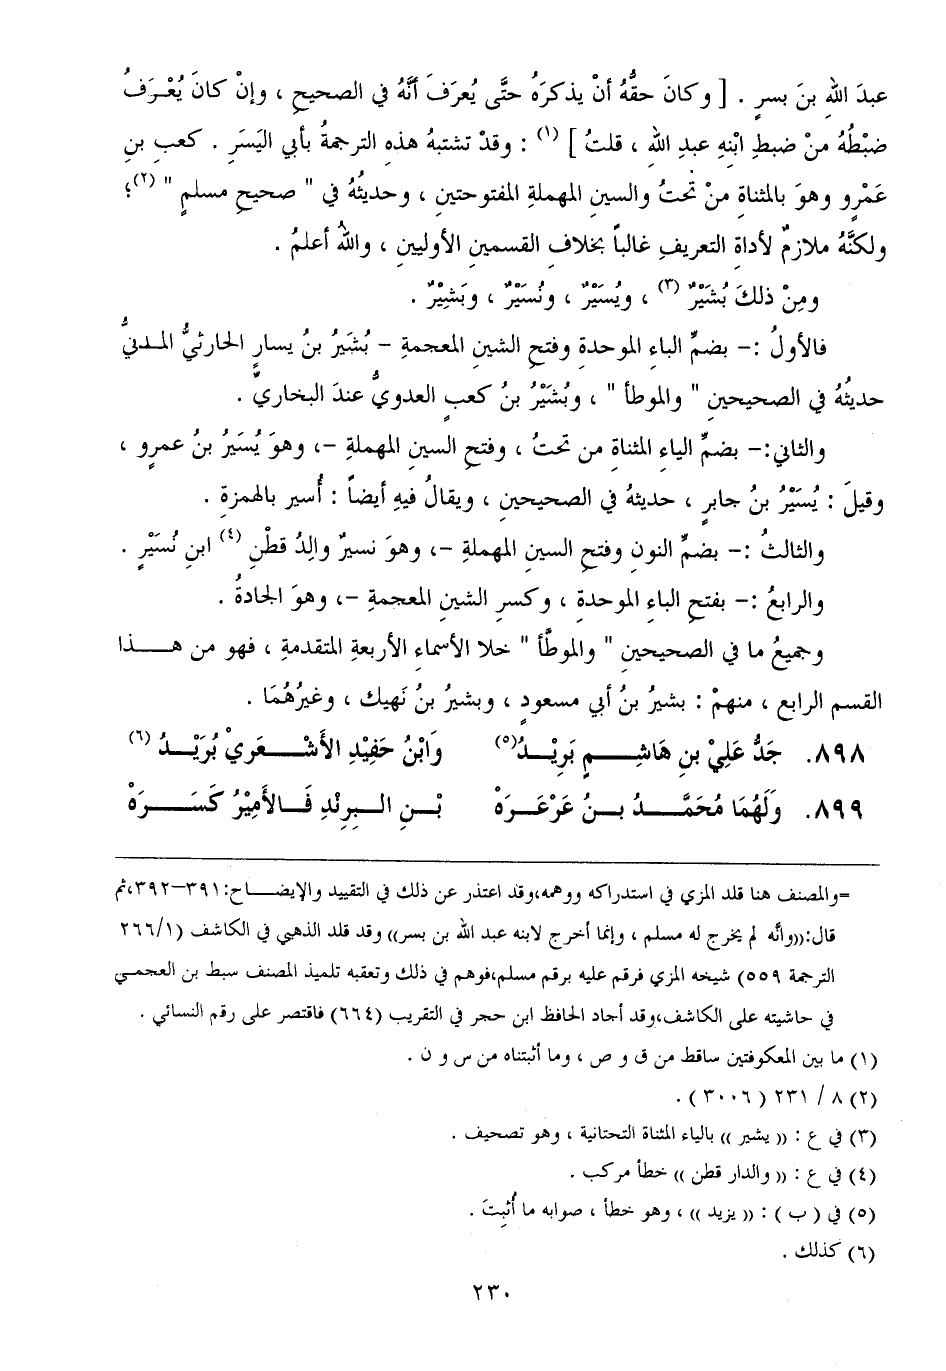 عبدَ اللهِ بنَ بسرٍ . [ وكانَ حقُّهُ أنْ يذكرَهُ حتَّى يُعرَفَ أنَّهُ في الصحيحِ ، وإنْ كانَ يُعْرَفُ
ضبْطُهُ مِنْ ضبطِ ابْنِهِ عبدِ اللهِ ، قلتُ ] (١) : وقدْ تشتبهُ هذهِ الترجمةُ بأبي اليَسَرِ . كعبِ بنِ
عَمْرٍو وهوَ بالمثناةِ مِنْ تحتُ والسينِ المهملةِ المفتوحتينِ ، وحديثُهُ في " صحيحِ مسلمٍ " (٢)؛
ولكنَّهُ ملازمٌ لأداةِ التعريفِ غالباً بخلافِ القسمينِ الأوليينِ ، واللهُ أعلمُ .
ومِنْ ذلكَ بُشَيْرٌ (٣) ، ويُسَيْرٌ ، ونُسَيْرٌ ، وبَشِيْرٌ .
فالأولُ :- بضمِّ الباءِ الموحدةِ وفتحِ الشينِ المعجمةِ - بُشَيرُ بنُ يسارٍ الحارثيُّ المدنيُّ
حديثُهُ في الصحيحينِ " والموطأ " ، وبُشَيْرُ بنُ كعبٍ العدويُّ عندَ البخاريِّ .
والثاني:- بضمِّ الياءِ المثناةِ من تحتُ ، وفتحِ السينِ المهملةِ -، وهوَ يُسَيرُ بنُ عمرٍو ،
وقيلَ : يُسَيْرُ بنُ جابرٍ ، حديثهُ في الصحيحينِ ، ويقالُ فيهِ أيضاً : أُسير بالهمزةِ .
والثالثُ :- بضمِّ النونِ وفتحِ السينِ المهملةِ -، وهوَ نسيرٌ والِدُ قطْنِ (٤) ابنِ نُسَيْرٍ .
والرابعُ :- بفتحِ الباءِ الموحدةِ ، وكسرِ الشينِ المعجمةِ -، وهوَ الجادةُ .
وجميعُ ما في الصحيحينِ " والموطَّأ " خلا الأسماءِ الأربعةِ المتقدمةِ ، فهو من هـذا
القسمِ الرابعِ ، منهمْ : بشيرُ بنُ أبي مسعودٍ ، وبشيرُ بنُ نَهيكٍ ، وغيرُهُمَا .
٨٩٨. جَدُّ عَلِيْ بنِ هَاشِـمٍ بَرِيْـدُ(٥) وَابْنُ حَفِيْدِ الأَشْـعَرِيْ بُرَيْـدُ (٦)
٨٩٩. وَلَهُمَا مُحَمَّـدُ بـنُ عَرْعَـرَهْ بْـنِ الـبِرِنْدِ فَـالأَمِيْرُ كَسَـرَهْ
=والمصنف هنا قلد المزي في استدراكه ووهمه،وقد اعتذر عن ذلك في التقييد والإيضـاح:٣٩١-٣٩٢،ثم
قال:((وأنَّه لم يخرج له مسلم ، وإنما أخرج لابنه عبد الله بن بسر)) وقد قلد الذهبي في الكاشف (٢٦٦/١
الترجمة ٥٥٩) شيخه المزي فرقم عليه برقم مسلم،فوهم في ذلك وتعقبه تلميذ المصنف سبط بن العجمـي
في حاشيته على الكاشف،وقد أجاد الحافظ ابن حجر في التقريب (٦٦٤) فاقتصر على رقم النسائي .
(١) ما بين المعكوفتين ساقط من ق و ص ، وما أثبتناه من س و ن .
(٢) ٨ / ٢٣١ ( ٣٠٠٦ ) .
(٣) في ع : (( يشير )) بالياء المثناة التحتانية ، وهو تصحيف .
(٤) في ع : (( والدار قطن )) خطأ مركب .
(٥) في ( ب ) : (( يزيد )) ، وهو خطأ ، صوابه ما أُثبِتَ .
(٦) كذلك .
٢٣٠